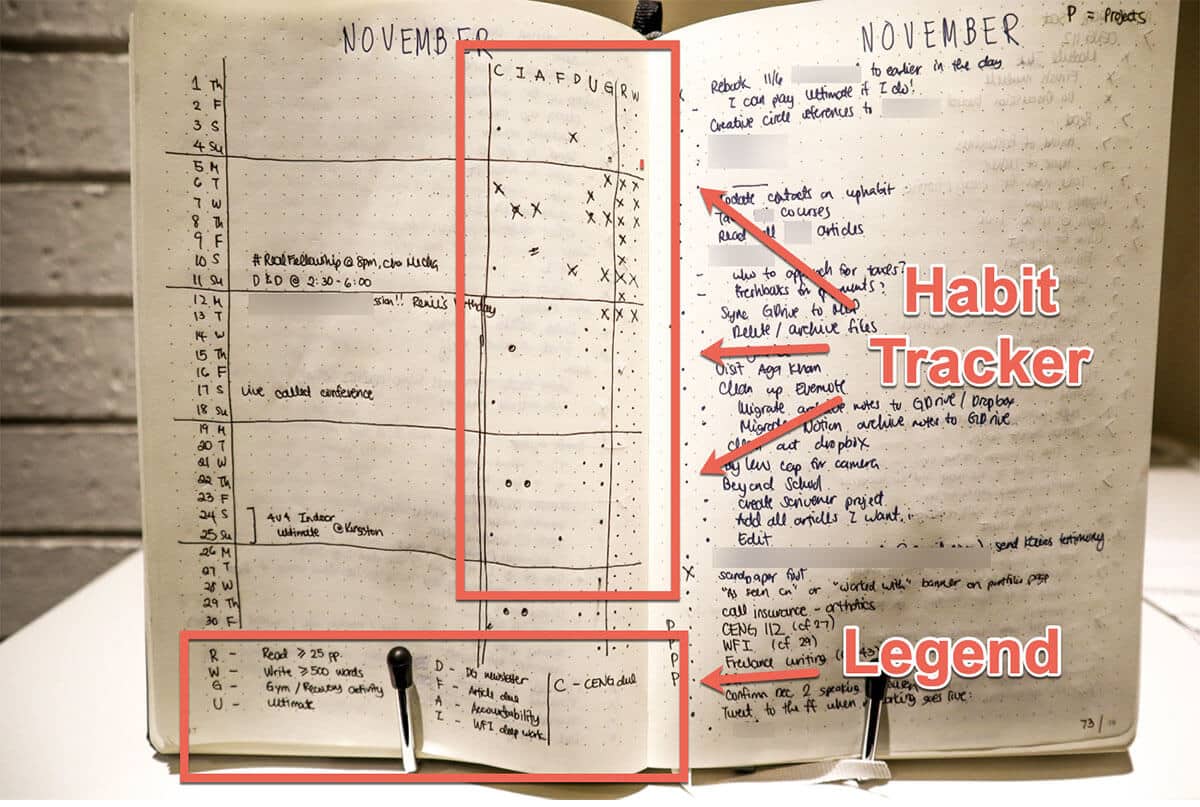 NOVEMBER
C I A F D U G R W
1 Th
2 F
3 S
4 Su
5 M
6 T
7 W
8 Th
9 F
10 S #RealFellowship @ 8pm, cho
11 Su D&D @ 2:30 - 6:00
12 M ssion!! Renie's Birthday
13 T
14 W
15 Th
16 F
17 S Live called conference
18 Su
19 M
20 T
21 W
22 Th
23 F
24 S 4v4 Indoor
25 Su Ultimate @Kingston
26 M
27 T
28 W
29 Th
30 F
R - Read ≥ 25 pp.
W - Write ≥ 500 words
G - Gym / Recovery activity
U - Ultimate
D - DG newsletter
F - Article due
A - Accountability
I - WFI deep work
C - CENG due
P = Projects
NOVEMBER
Rebook 11/6 to earlier in the day
I can play Ultimate if I do!
Creative circle references to
Update contacts on uphabit
courses
Read articles
- who to approach for taxes?
- Freshbooks
Sync GDrive to
Delete / archive files
Visit Aga Khan
Clean up Evernote
Migrate archive notes to GDrive / Dropbox
Migrate Notion archive notes to GDrive
Clean out dropbox
Buy lens cap for camera
Beyond School
create scrivener project
Add all articles I want..
Edit
send testimony
x sandpaper
"As seen on" or "worked with" banner on portfolio page
call insurance - orthotics
P CENG 112 (cf 27)
P WFI (cf 29)
P Freelance writing
P
Confirm Dec 2 speaking
Tweet to the ff when goes live:
73
Habit
Tracker
Legend